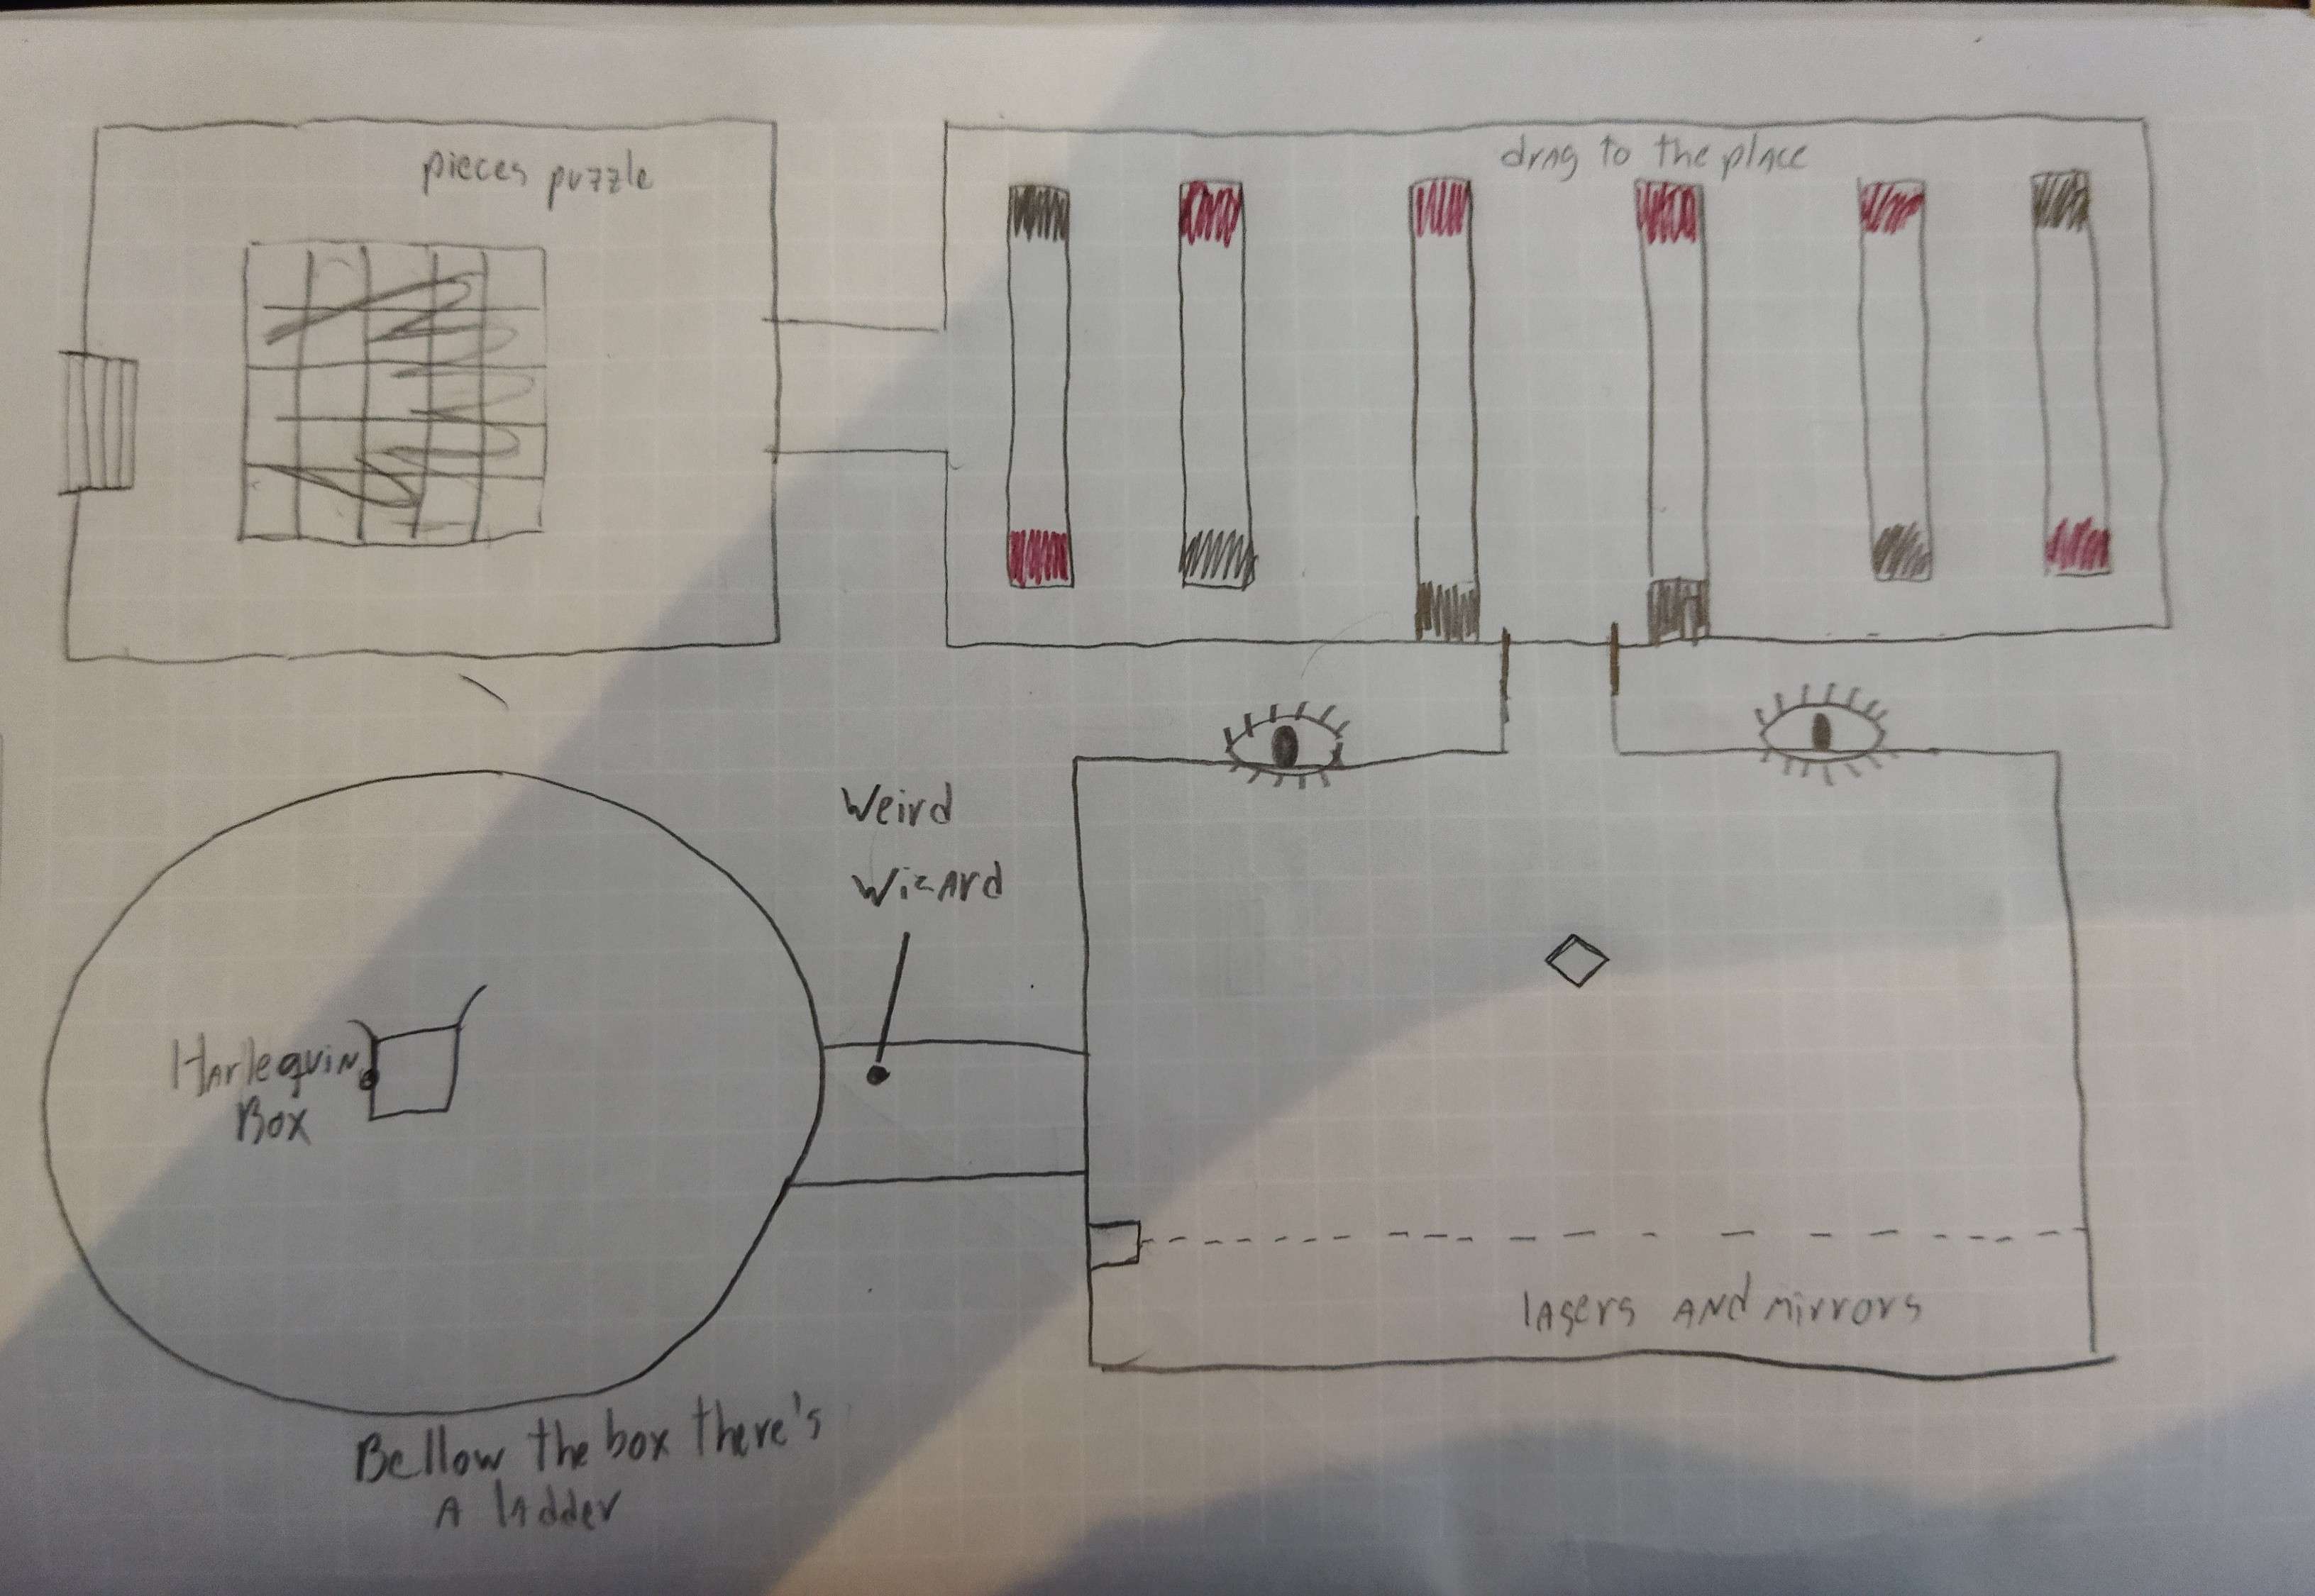 pieces puzzle
drag to the place
Weird
Wizard
Harlequin
Box
lasers and mirrors
Bellow the box there's
a ladder